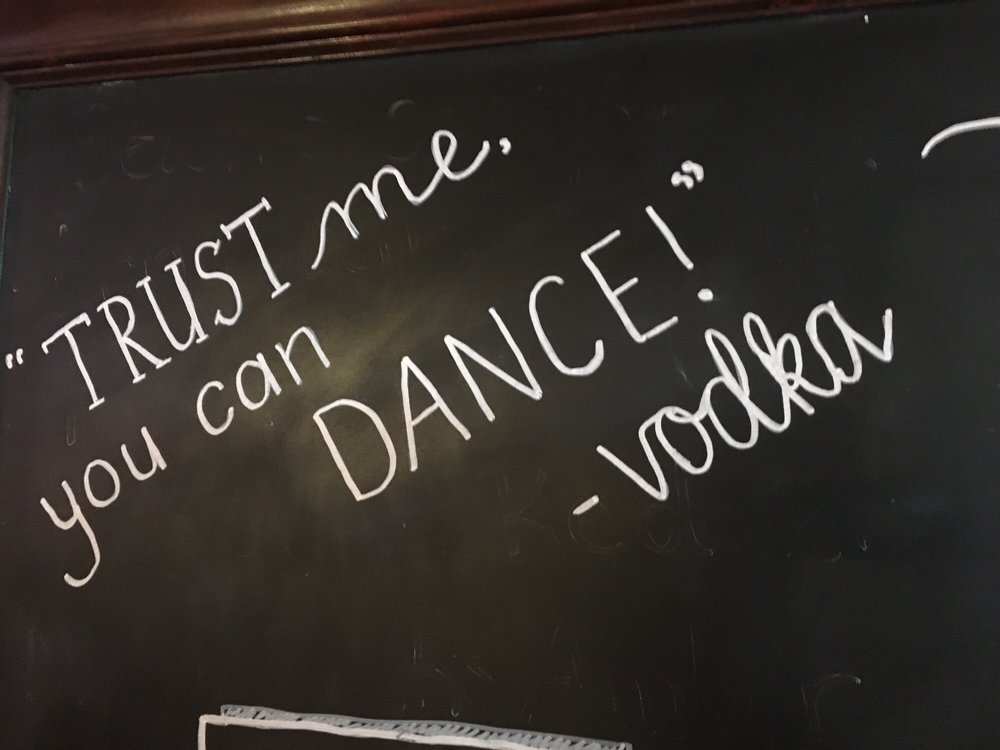 "TRUST me,
you can
DANCE!"
-vodka